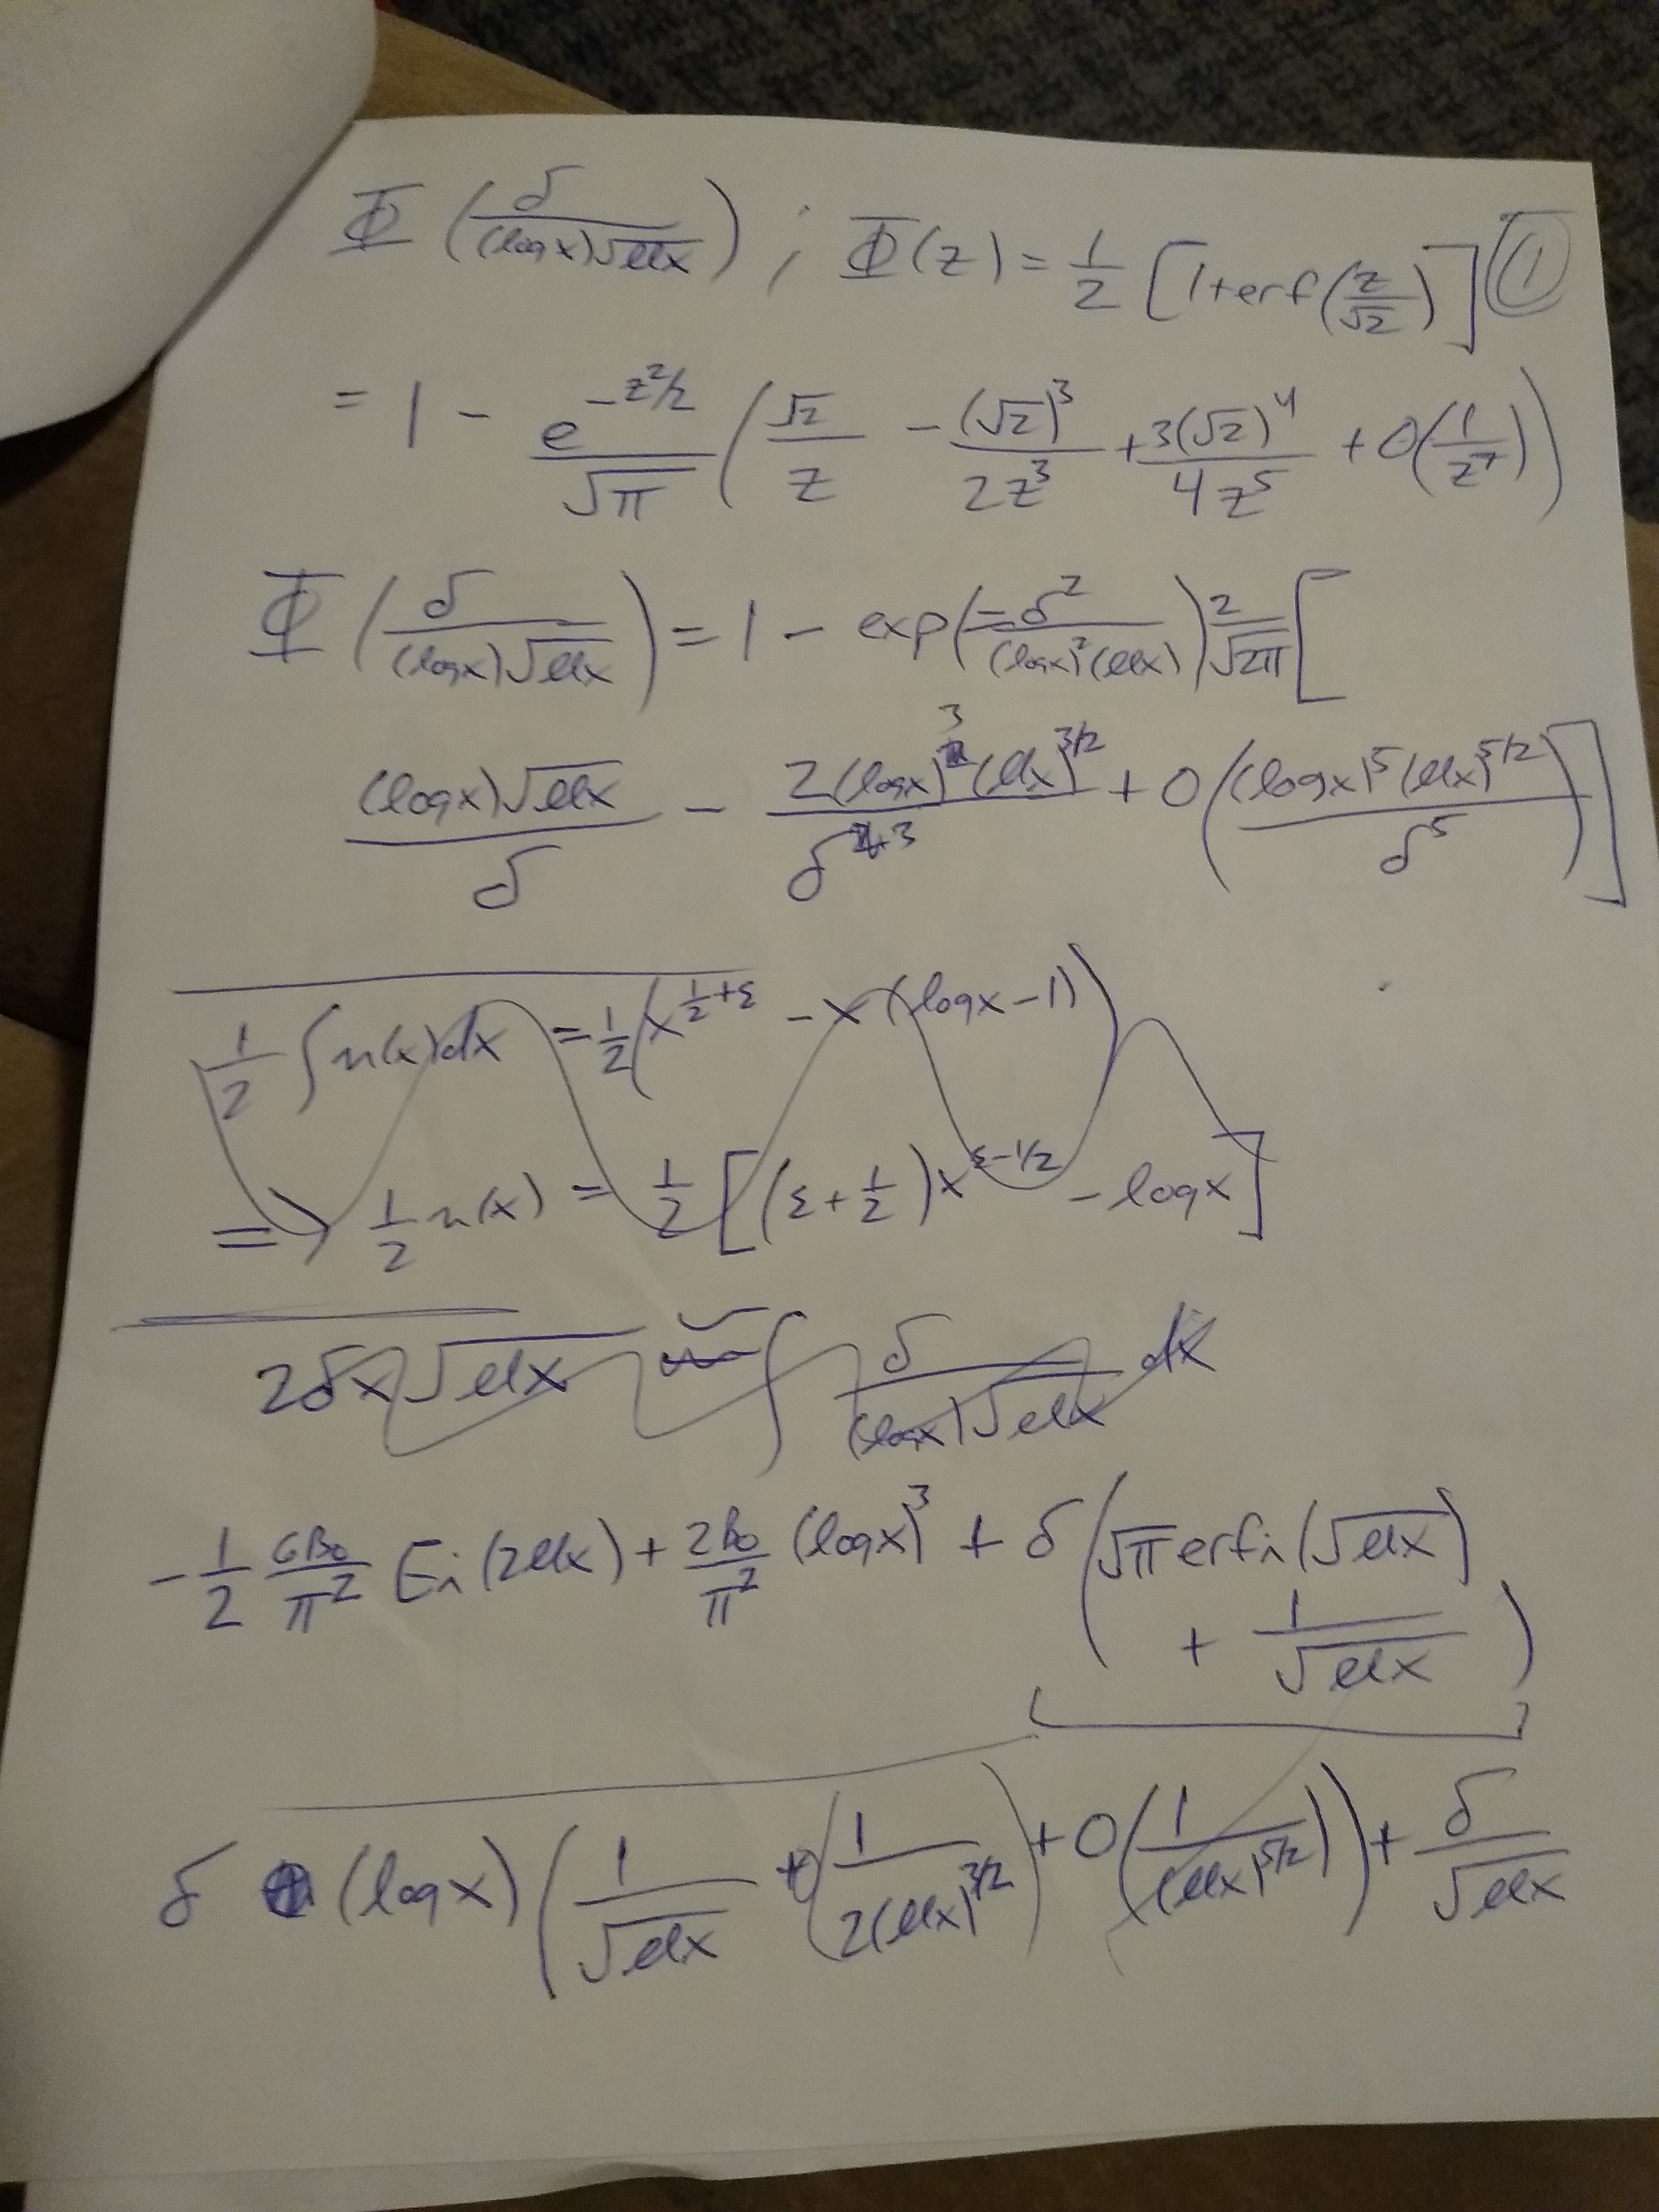 Φ(δ/((log x)√(llx))) ; Φ(z) = 1/2 [1+erf(z/√2)] ①
= 1 − e^(−z²/2)/√π (√2/z − (√2)³/(2z³) + 3(√2)⁴/(4z⁵) + O(1/z⁷))
Φ(δ/((log x)√(llx))) = 1 − exp(−δ²/((log x)²(llx))) 2/√(2π) [
(log x)√(llx)/δ − 2(log x)³(llx)^(3/2)/δ³ + O((log x)⁵(llx)^(5/2)/δ⁵)]
1/2 ∫ n(x)dx = 1/2 (x^(1/2+ε) − x(log x − 1))
=> 1/2 n(x) = 1/2 [(ε + 1/2)x^(ε−1/2) − log x]
2δx√(llx) ∫ δ/((log x)√(llx)) dx
−1/2 6β₀/π² Ei(2llx) + 2β₀/π² (log x)³ + δ(√π erfi(√(llx))
+ 1/√(llx))
δ (log x)(1/√(llx) + (1/(2(llx)^(3/2))) + O(1/(llx)^(5/2))) + δ/√(llx)